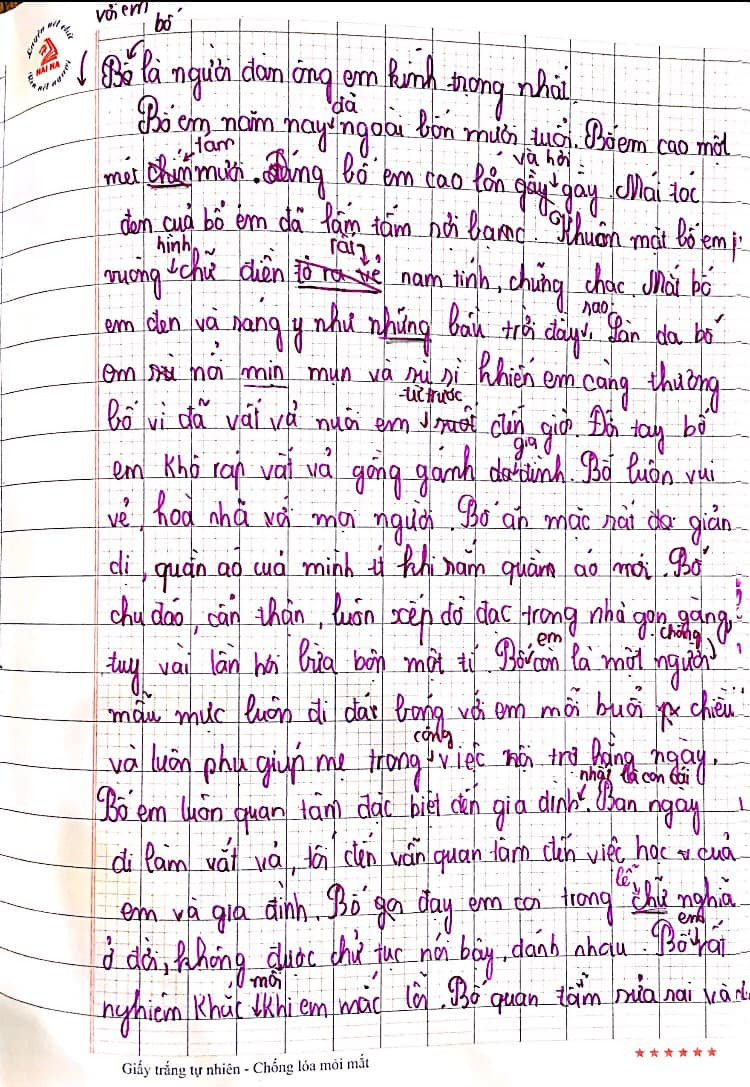 với em bố
Bố là người đàn ông em kính trọng nhất
đã
Bố em năm nay ngoài bốn mươi tuổi. Bố em cao một
tám
mét chín mươi. Dáng bố em cao lớn gầy gầy. Mái tóc
và hơi
đen của bố em đã lấm tấm sợi bạc. Khuôn mặt bố em
hình rất
vuông chữ điền tỏ ra vẻ nam tính, chững chạc. Mắt bố
sao
em đen và sáng y như những bầu trời đầy. Làn da bố
em nổi min mụn và sù sì khiến em càng thương
từ trước
bố vì đã vất vả nuôi em suốt đến giờ. Đôi tay bố
gia
em khô ráp vất vả gồng gánh đình. Bố luôn vui
vẻ, hoà nhã với mọi người. Bố ăn mặc rất giản
dị, quần aó cuả mình ít khi sắm quầm áo mới. Bố
chu đáo, cẩn thận, luôn xếp đồ đạc trong nhà gọn gàng,
em chồng
tuy vài lần hơi bừa bộn một tí. Bố còn là một người
mẫu mực luôn đi đá bóng với em mỗi buổi chiều
công
và luôn phụ giúp mẹ trong việc nội trợ hằng ngày.
nhất là con cái
Bố em luôn quan tâm đặc biệt đến gia đình. Ban ngày
đi làm vất vả, tối đến vẫn quan tâm đến việc học cuả
lễ
em và gia đình. Bố dạy em coi trọng chữ nghĩa
em
ở đời, không được chử tục nói bậy, đánh nhau. Bố rất
mỗi
nghiêm khắc khi em mắc lỗi. Bố quan tâm sửa sai và
Giấy trắng tự nhiên - Chống lóa mỏi mắt
HẢI HÀ